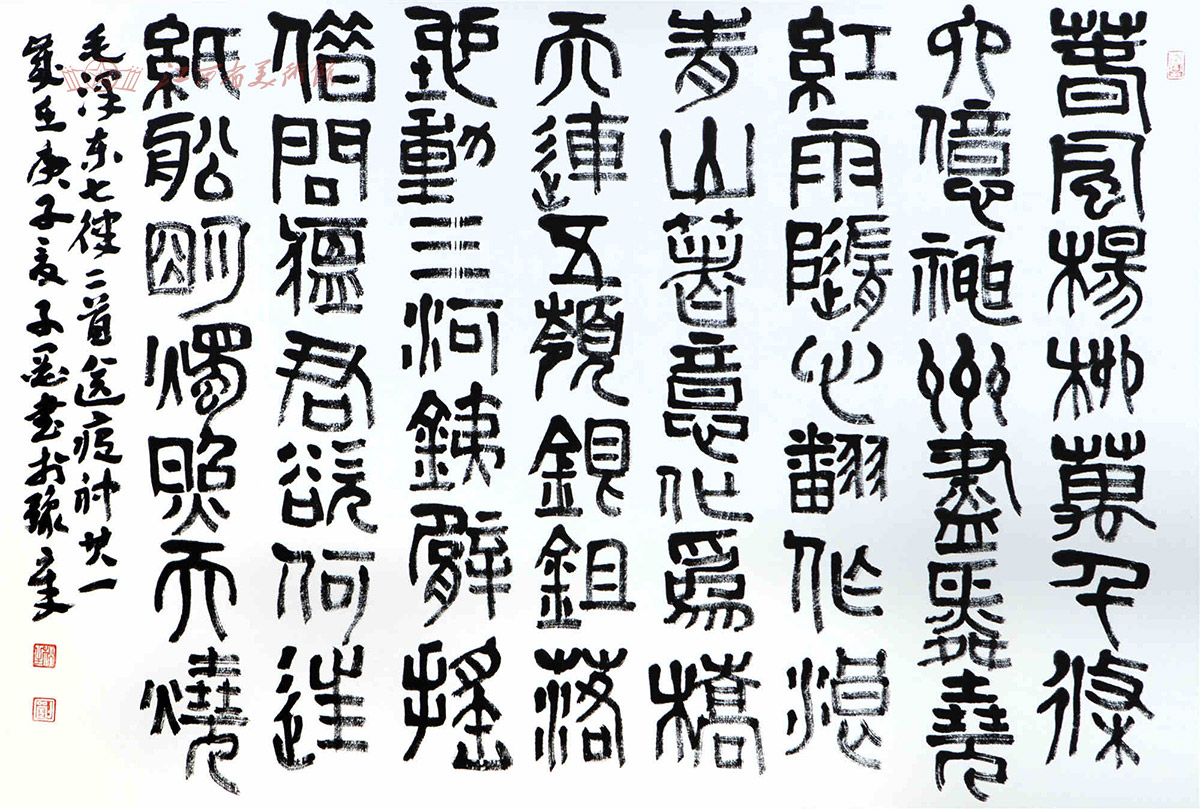 春風楊柳萬千條
六億神州盡舜堯
紅雨隨心翻作浪
青山著意化為橋
天連五嶺銀鉏落
地動三河銕臂搖
借問瘟君欲何往
紙船明燭照天燒
毛澤東七律二首送疫神其一
歲在庚子夏子書於豫章
江西省美術館